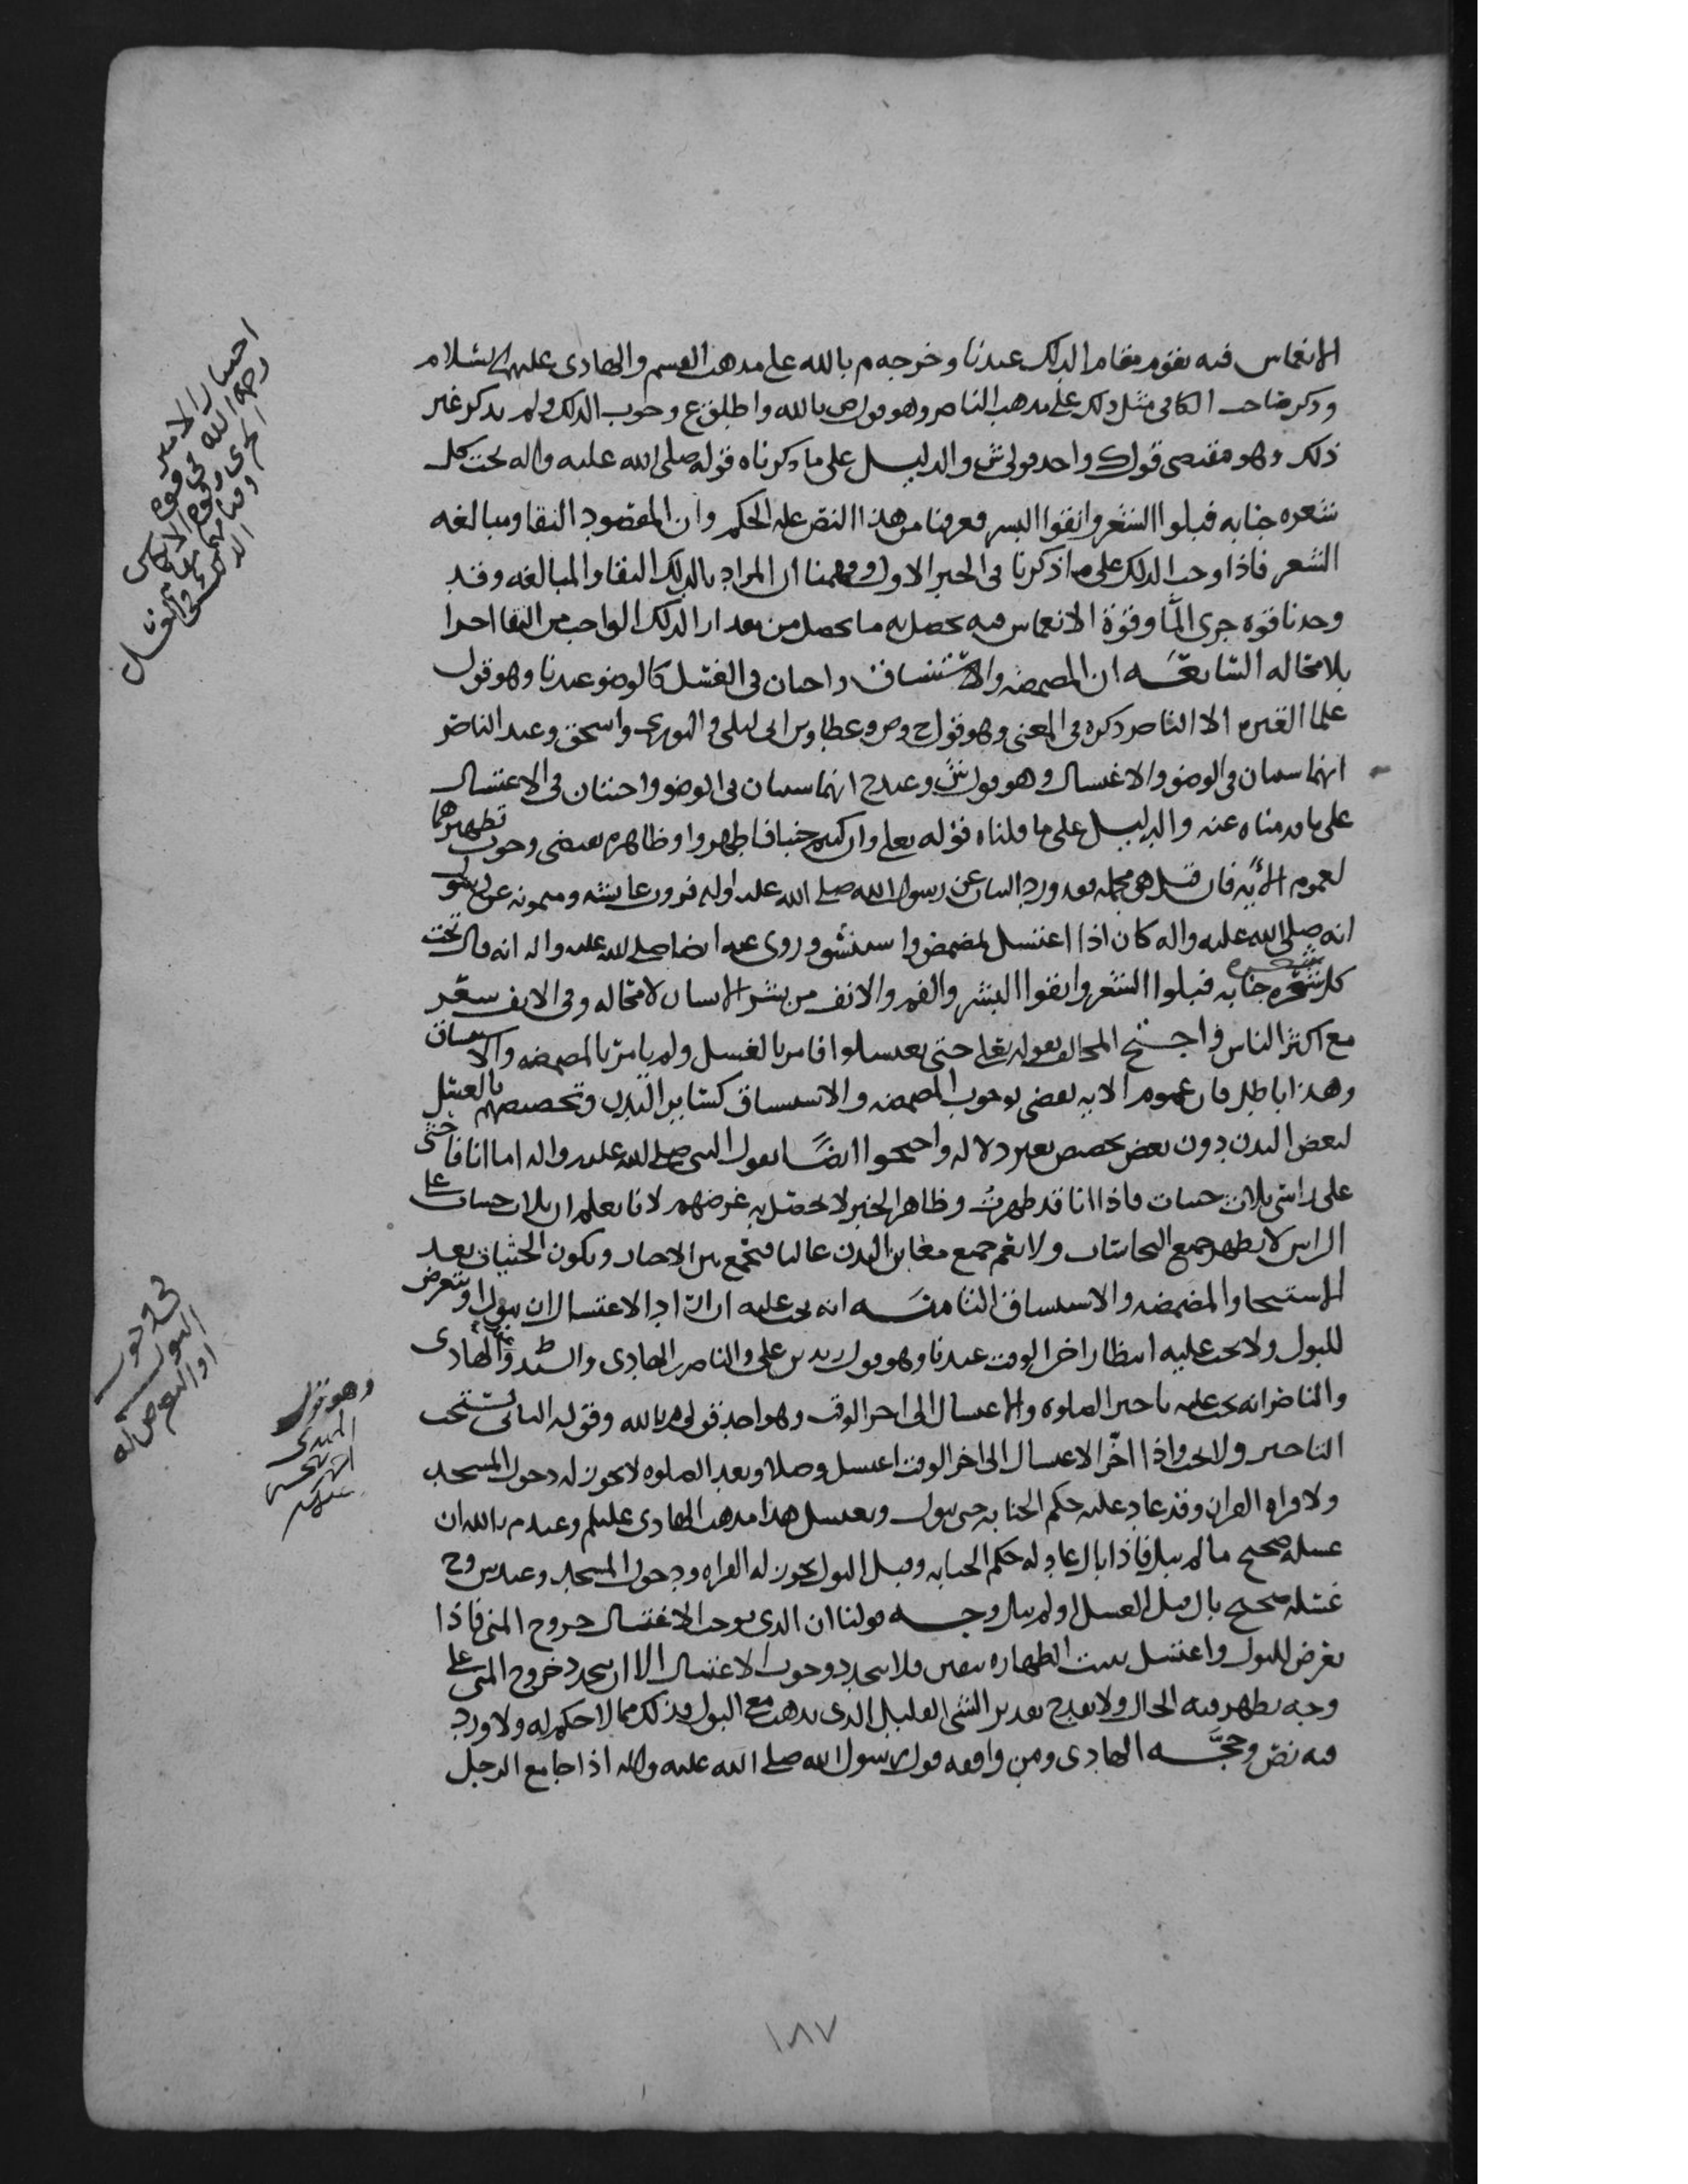 الانغماس فيه يقوم مقام الدلك عندنا وخرجه م بالله على مذهب القسم والهادى عليهم السلام
وذكر صاحب الكافى مثل ذلك على مذهب الناصر وهو قول ص بالله واطلق ع وجوب الدلك ولم يذكر غير
ذلك وهو مقتضى قول ك واحد قولى ش والدليل على ما ذكرناه قوله صلى الله عليه واله تحت كل
شعره جنابه فبلوا الشعر وانقوا البشر فعرفنا من هذا النص عله الحكم وان المقصود النقا ومبالغه
الشعر فاذا وجب الدلك على ما ذكرنا فى الخبر الاول وفهمنا ان المراد بالدلك النقا والمبالغه وقد
وجدنا قوه جرى الما وقوة الانغماس فيه يحصل به ما يحصل من مقدار الدلك الواجب من النقا اجزا
بلا محاله السابعه ان المضمضه والاستنشاق واجبان فى الغسل كالوضو عندنا وهو قول
علما العتره الا الناصر ذكره فى المغنى وهو قول ح وص وعطا وبن ابى ليلى والثورى واسحق وعند الناصر
انهما سنتان فى الوضو والاغتسال وهو قول ش وعند ح انهما سنتان فى الوضو واجبتان فى الاغتسال
على ما قدمناه عنه والدليل على ما قلناه قوله تعلى وان كنتم جنبا فاطهروا وظاهره يقتضى وجوب تطهيرهما
لعموم الآيه فان قيل هى مجمله فقد ورد البيان عن رسول الله صلى الله عليه واله فروت عايشه وميمونه عن رسول
انه صلى الله عليه واله كان اذا اغتسل تمضمض واستنشق وروى عنه ايضا صلى الله عليه واله انه قال تحت
كل شعره جنابه فبلوا الشعر وانقوا البشر والفم والانف من بشر الانسان لا محاله وفى الانف شعر
مع اكثر الناس واحتج المخالف بقوله تعلى حتى تغتسلوا فامر بالغسل ولم يامر بالمضمضه والاستنشاق
وهذا باطل فان عموم الايه يقضى بوجوب المضمضه والاستنشاق كساير البدن وتخصيصهم بالغسل
لبعض البدن دون بعض تخصيص بغير دلاله واحتجوا ايضًا بقول النبى صلى الله عليه واله اما انا فاحثى
على راسى ثلاث حثيات فاذا انا قد طهرت وظاهر الخبر لا يحصل به غرضهم لانا نعلم ان ثلاث حثيات على
الراس لا يطهر جميع النجاسات ولا يعم جميع مغابن البدن غالبا فنجمع بين الاخبار ويكون الحثيات بعد
الاستنجا والمضمضه والاستنشاق الثامنه انه يجب عليه اذا اراد الاغتسال ان يبول او يتعرض
للبول ولا يجب عليه انتظار اخر الوقت عندنا وهو قول زيد بن على والناصر الهادى والسيد وعند الهادى
والناصر انه يجب عليه تاخير الصلوة والاغتسال الى اخر الوقت وهو احد قولى م بالله وقوله الثانى يستحب
التاخير ولا يجب واذا اخّر الاغتسال الى اخر الوقت اغتسل وصلا وبعد الصلوه لا يجوز له دخول المسجد
ولا قراه القران وقد عاد عليه حكم الجنابه حتى يبول ويغتسل هذا مذهب الهادى عليلم وعند م بالله ان
غسله صحيح ما لم يبل فاذا بال عاد له حكم الجنابه وقبل البول يجوز له القراه ودخول المسجد وعند ش وح
غسله صحيح بال قبل الغسل او لم يبل وجه قولنا ان الذى يوجب الاغتسال خروج المنى فاذا
تعرض للبول واغتسل تيقنت الطهاره بيقين فلا يتجدد وجوب الاغتسال الا ان يتجدد خروج المنى على
وجه يظهر فيه الحال ولا يقدح تقدير الشى القليل الذى يذهب مع البول فذلك مما لا حكم له ولا ورد
فيه نص وحجه الهادى ومن وافقه قول رسول الله صلى الله عليه واله اذا جامع الرجل
احسار الامير
رحمه الله فى قوه
الجرى وقوه الانغماس
فى وجوب
البول
او التعرض له
وهو قول
المهدى
١٨٧